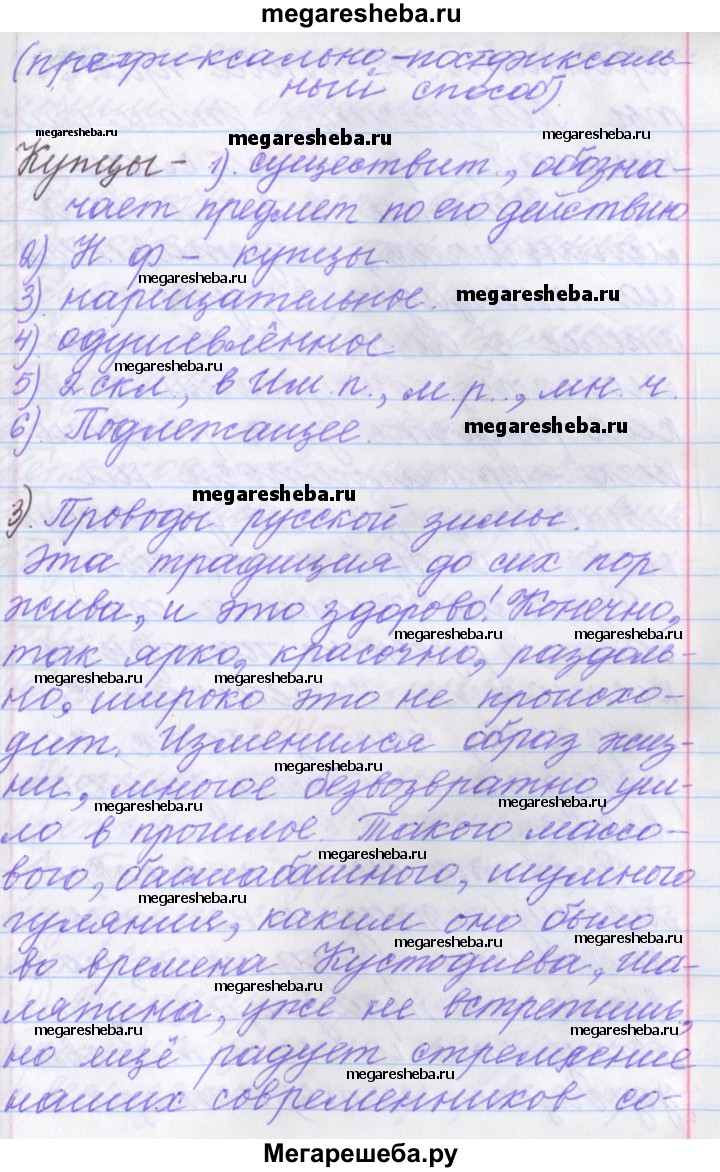 megaresheba.ru
(префиксально-постфиксаль-
ный способ).
megaresheba.ru megaresheba.ru megaresheba.ru
Купцы - 1). существит., обозна-
чает предмет по его действию
2) Н. ф - купцы.
megaresheba.ru
3). нарицательное. megaresheba.ru
4). одушевлённое.
megaresheba.ru
5) 2 скл., в Им. п., м. р., мн. ч.
6). Подлежащее. megaresheba.ru
megaresheba.ru
3). Проводы русской зимы.
Эта традиция до сих пор
жива, и это здорово! Конечно,
megaresheba.ru megaresheba.ru
так ярко, красочно, раздоль-
megaresheba.ru megaresheba.ru
но, широко это не происхо-
дит. Изменился образ жиз-
megaresheba.ru
ни, многое безвозвратно уш-
megaresheba.ru megaresheba.ru
ло в прошлое. Такого массо-
megaresheba.ru
вого, бесшабашного, шумного
megaresheba.ru
гуляния, каким оно было
megaresheba.ru megaresheba.ru
во времена Кустодиева, Ша-
megaresheba.ru
ляпина, уже не встретишь,
megaresheba.ru megaresheba.ru
но ещё радует стремление
megaresheba.ru
наших современников со-
Мегарешеба.ру